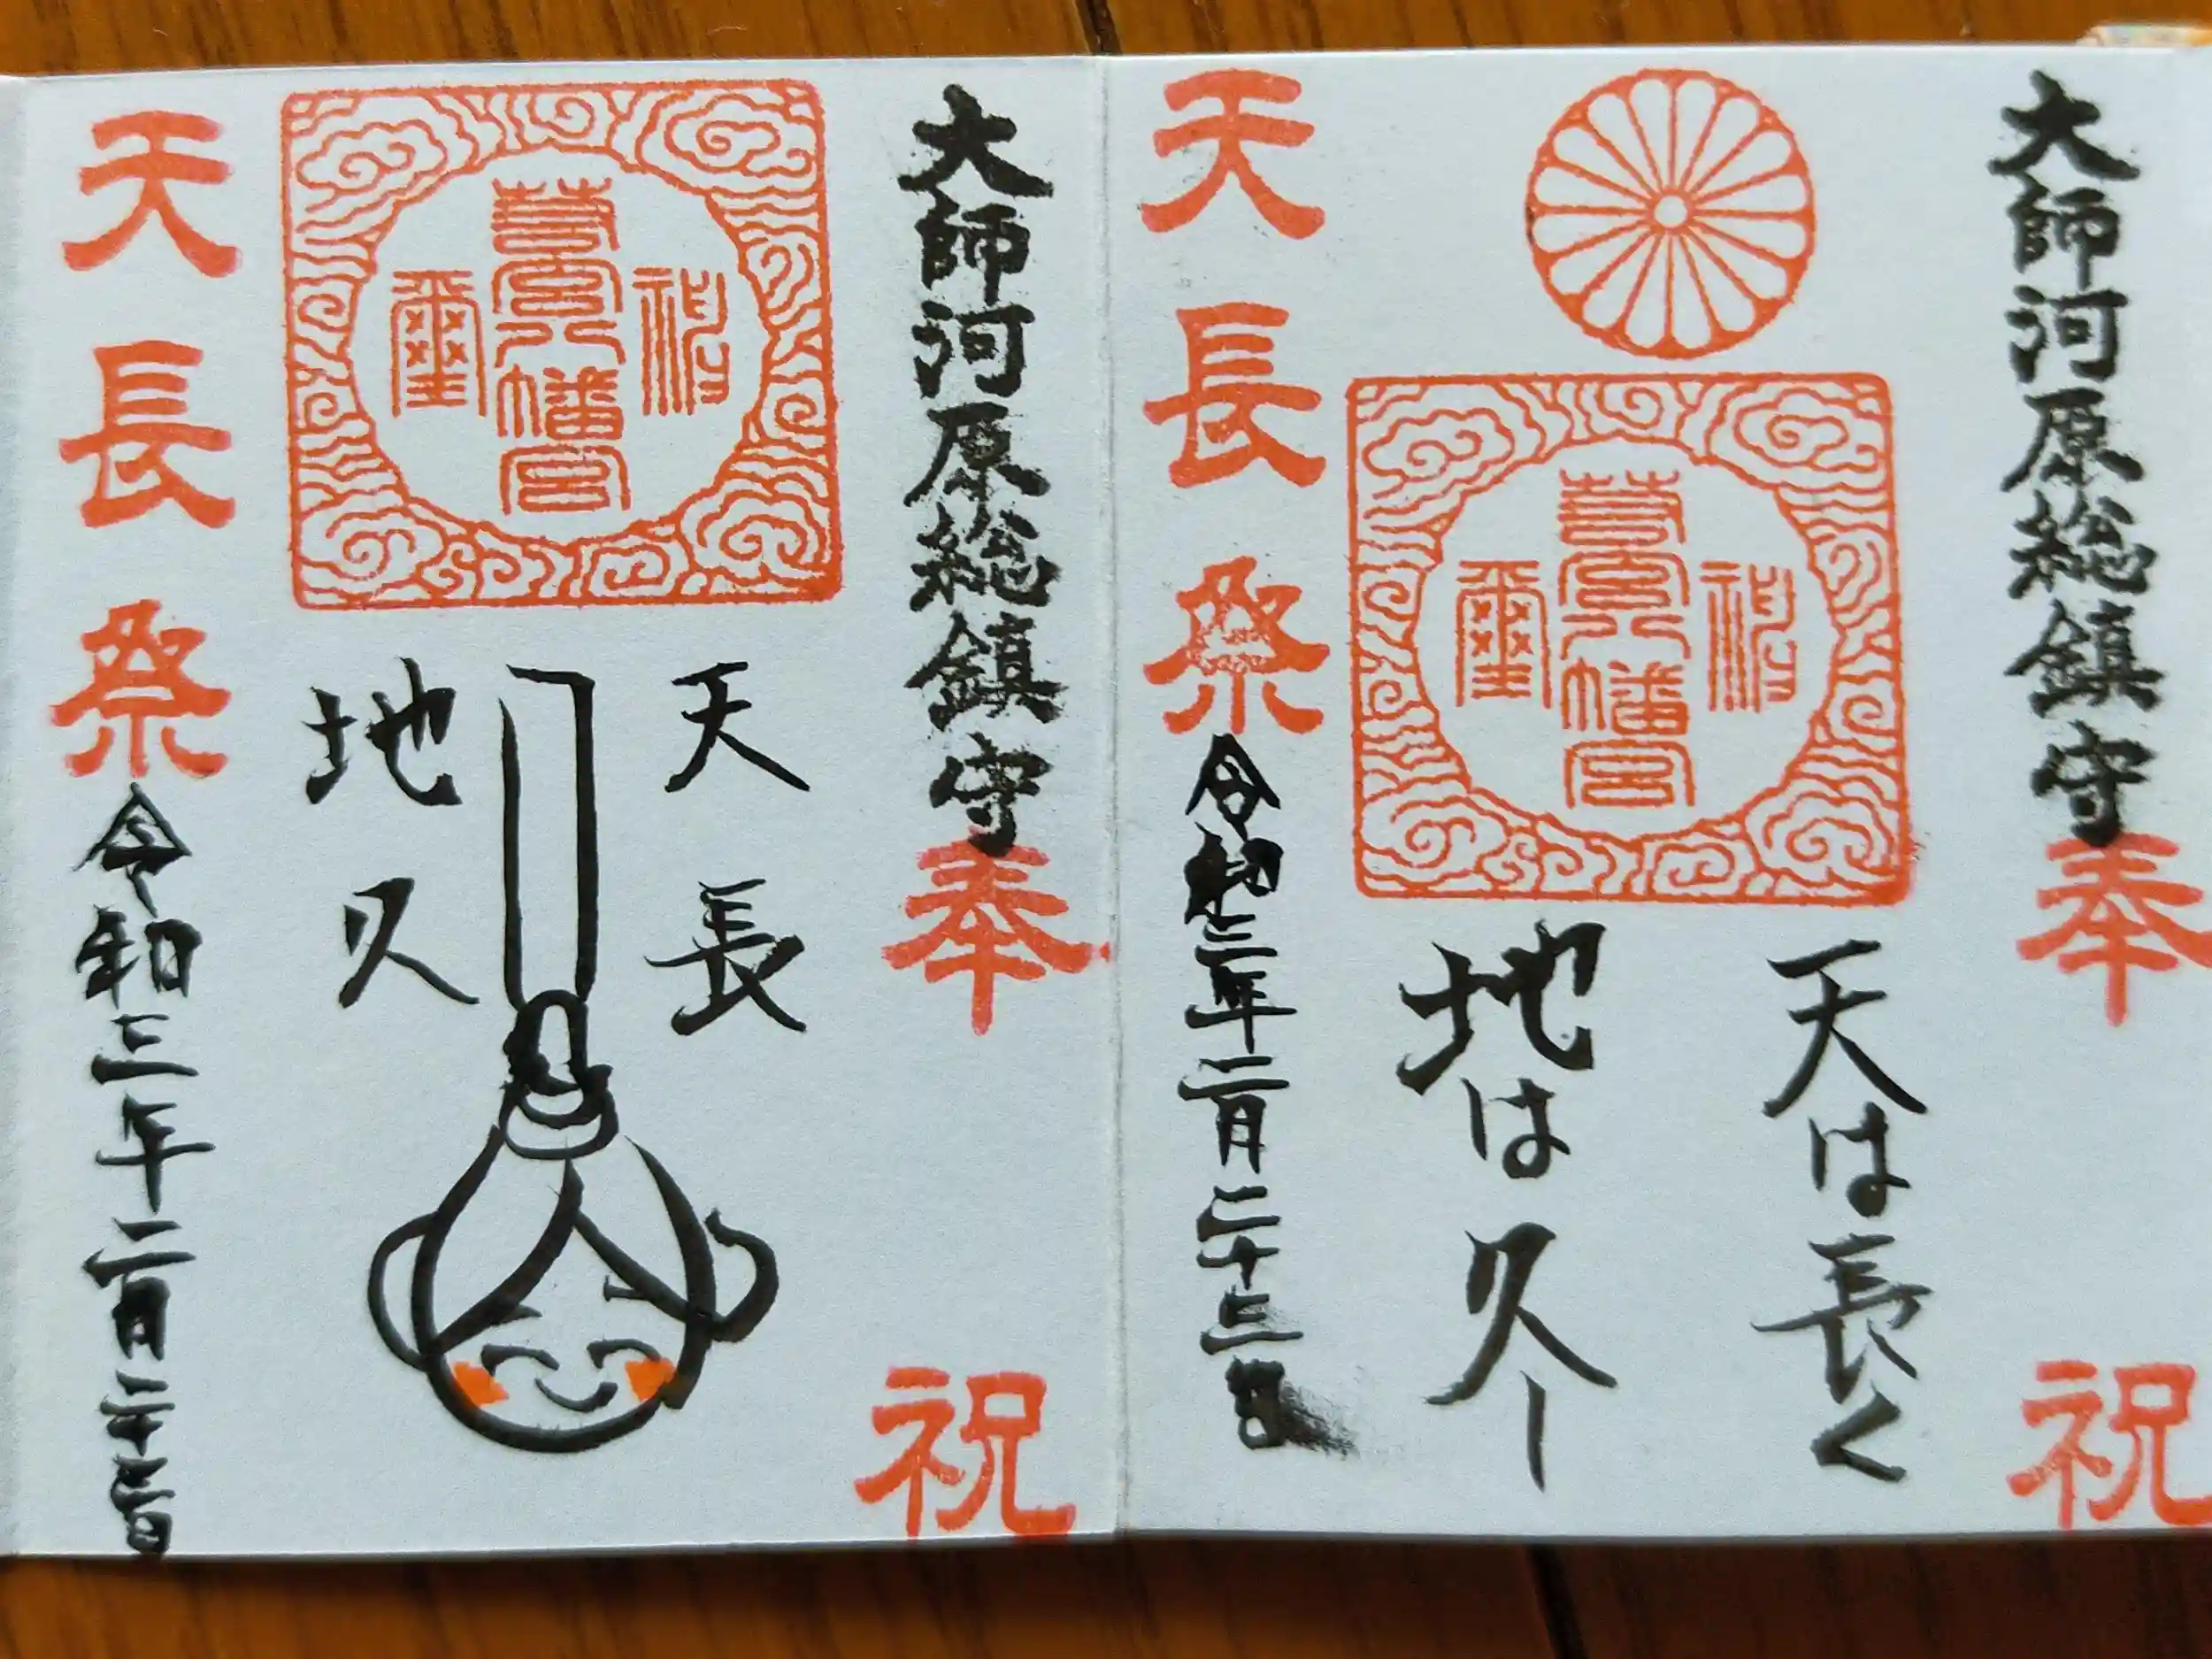 大師河原総鎮守
奉祝
神
若宮八幡宮
璽
天は長く
地は久し
天長祭
令和三年二月二十三日
大師河原総鎮守
奉祝
神
若宮八幡宮
璽
天長
地久
天長祭
令和三年二月二十三日